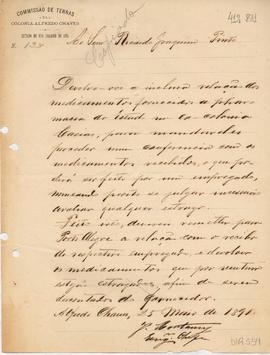 COMMISSÃO DE TERRAS
COLONIA ALFREDO CHAVES
ESTADO DO RIO GRANDE DO SUL
412 821
N. 128
Ao Snr. Ricardo Joaquim Pinto
Devolvo-vos a inclusa relação dos
medicamentos fornecidos a pharmacia
do Estado na Colonia
Caxias, para mandardes
proceder uma conferencia com os
medicamentos recebidos, o que poderá
ser feito por um empregado,
nomeando perito se julgar necessario
avaliar qualquer estrago.
Feito isso, devem remetter para
Porto Alegre a relação com o recibo
do respectivo empregado, e devolver
os medicamentos que por ventura
estejam estragados, afim de serem
descontados do fornecedor.
Alfredo Chaves, 25 Maio de 1891
J. Montaury
Eng.º Chefe